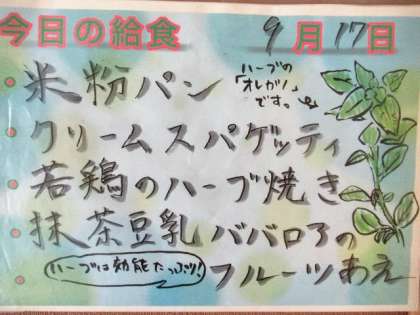 今日の給食 9月17日
・米粉パン
ハーブの
「オレガノ」
です。
・クリームスパゲッティ
・若鶏のハーブ焼き
・抹茶豆乳ババロアの
フルーツあえ
ハーブは効能たっぷり!